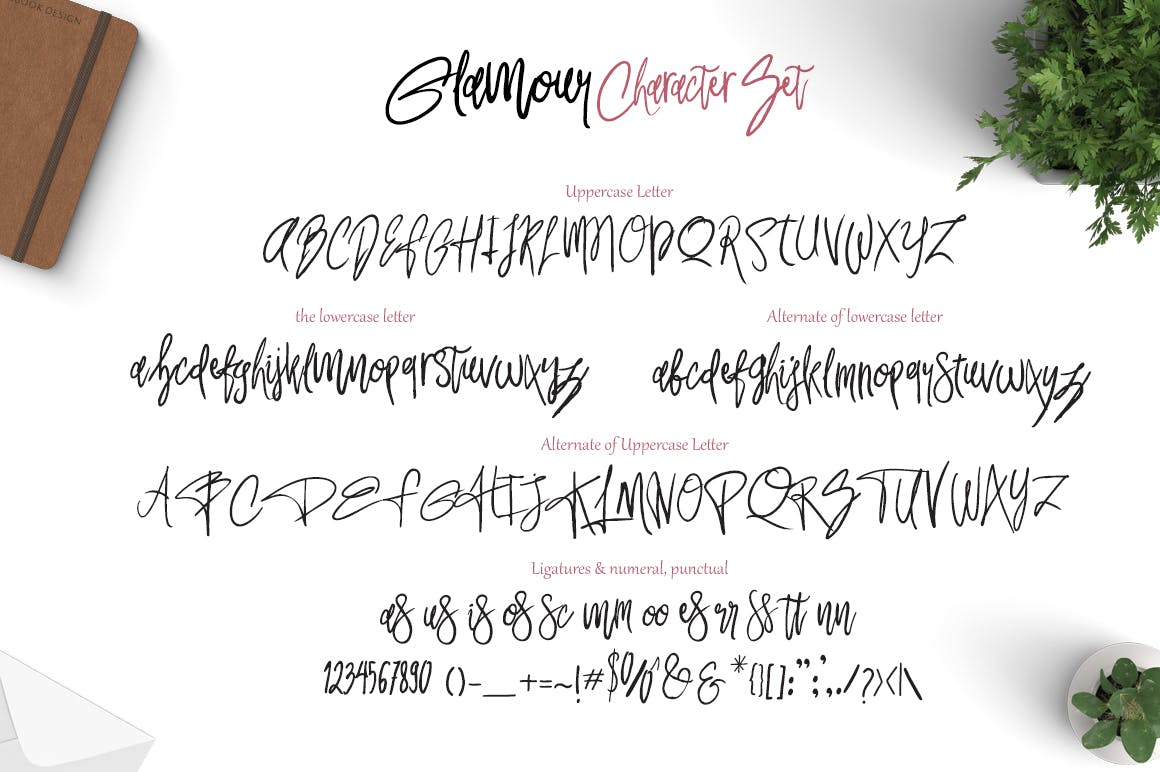 BOOK DESIGN
Glamour Character Set
Uppercase Letter
ABCDEFGHIJKLMNOPQRSTUVWXYZ
the lowercase letter
abcdefghijklmnopqrstuvwxyz
Alternate of lowercase letter
abcdefghijklmnopqrstuvwxyz
Alternate of Uppercase Letter
ABCDEFGHIJKLMNOPQRSTUVWXYZ
Ligatures & numeral, punctual
as us is os Sc mm oo es rr SS tt nn
1234567890 ()-__+=~!#$%^&& *{}[]:”;’,./?><|\